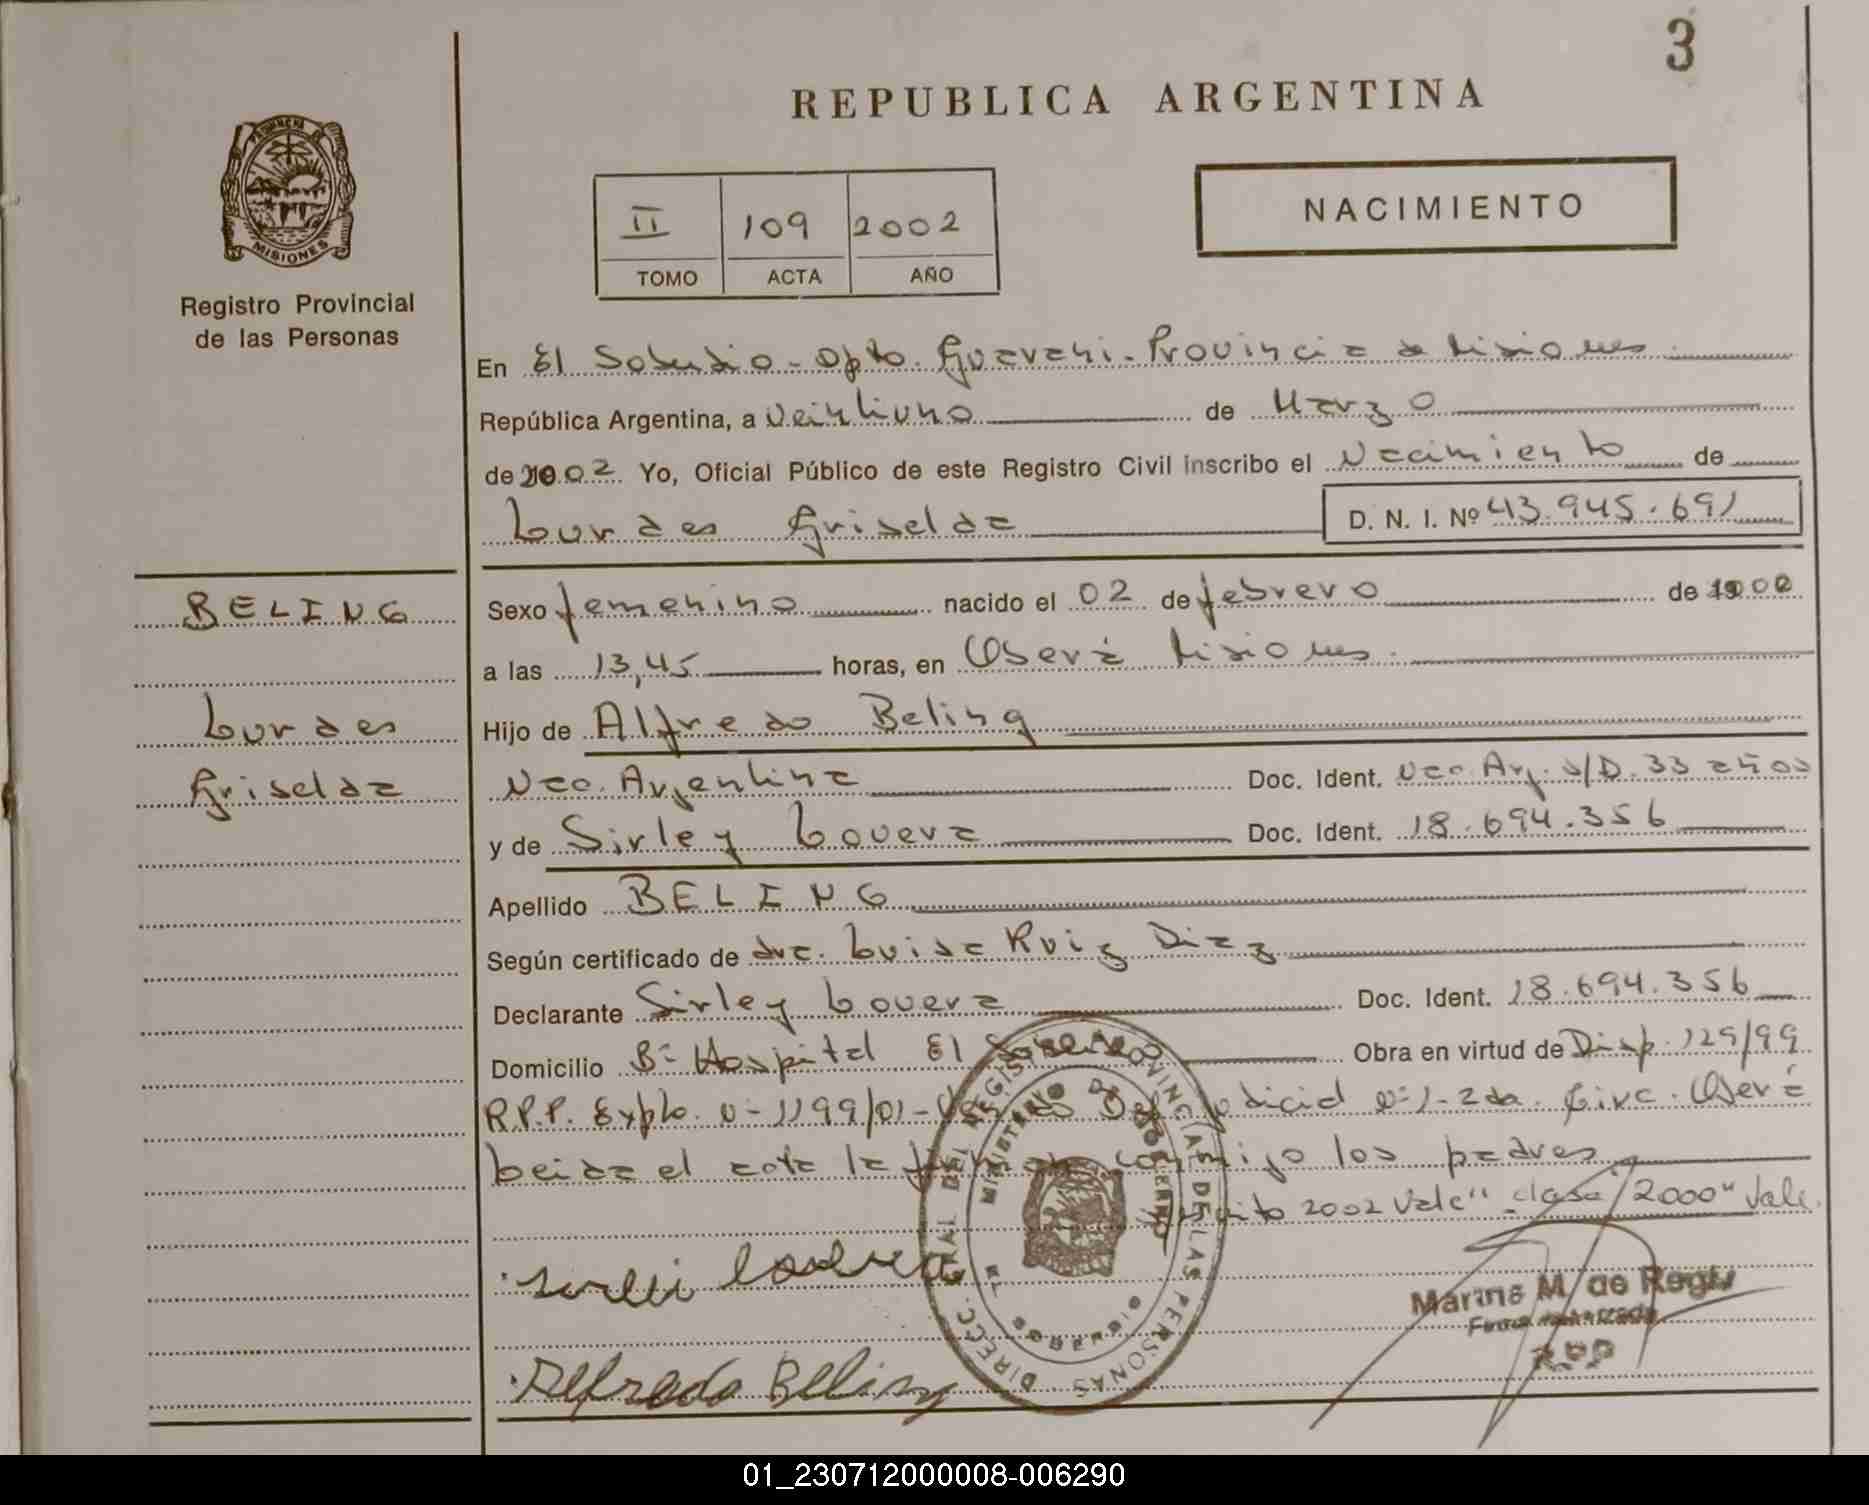 3
REPUBLICA ARGENTINA
PROVINCIA DE
MISIONES
Registro Provincial
de las Personas
II 109 2002
TOMO ACTA AÑO
NACIMIENTO
En El Soberbio - Dpto. Guarani - Provincia de Misiones
República Argentina, a Veintiuno de Marzo
de 2002 Yo, Oficial Público de este Registro Civil inscribo el Nacimiento de
Lourdes Griselda D. N. I. Nº 43.945.691
BELING
Lourdes
Griselda
Sexo femenino nacido el 02 de febrero de
a las 13,45 horas, en Oberá Misiones.
Hijo de Alfredo Beling
Nac. Argentina Doc. Ident. Nac. Arg. S/D. 33 años
y de Sirley Lovera Doc. Ident. 18.694.356
Apellido BELING
Según certificado de dra. Luisa Ruiz Diaz
Declarante Sirley Lovera Doc. Ident. 18.694.356
Domicilio Bº Hospital El Soberbio Obra en virtud de Disp. 129/99
R.P.P. Expte. Nº 1199/01 - Nº 1 - 2da. Circ. Oberá
Leida el acta la conmigo los padres
2002 Vale" - clase/2000" Vale.
DIRECC. GRAL DEL REGISTRO PROVINCIAL DE LAS PERSONAS
MINISTERIO DE GOBIERNO
EL SOBERBIO
Marina M. de Regis
Firma Autorizada
R.P.P
Alfredo Beling
01_230712000008-006290